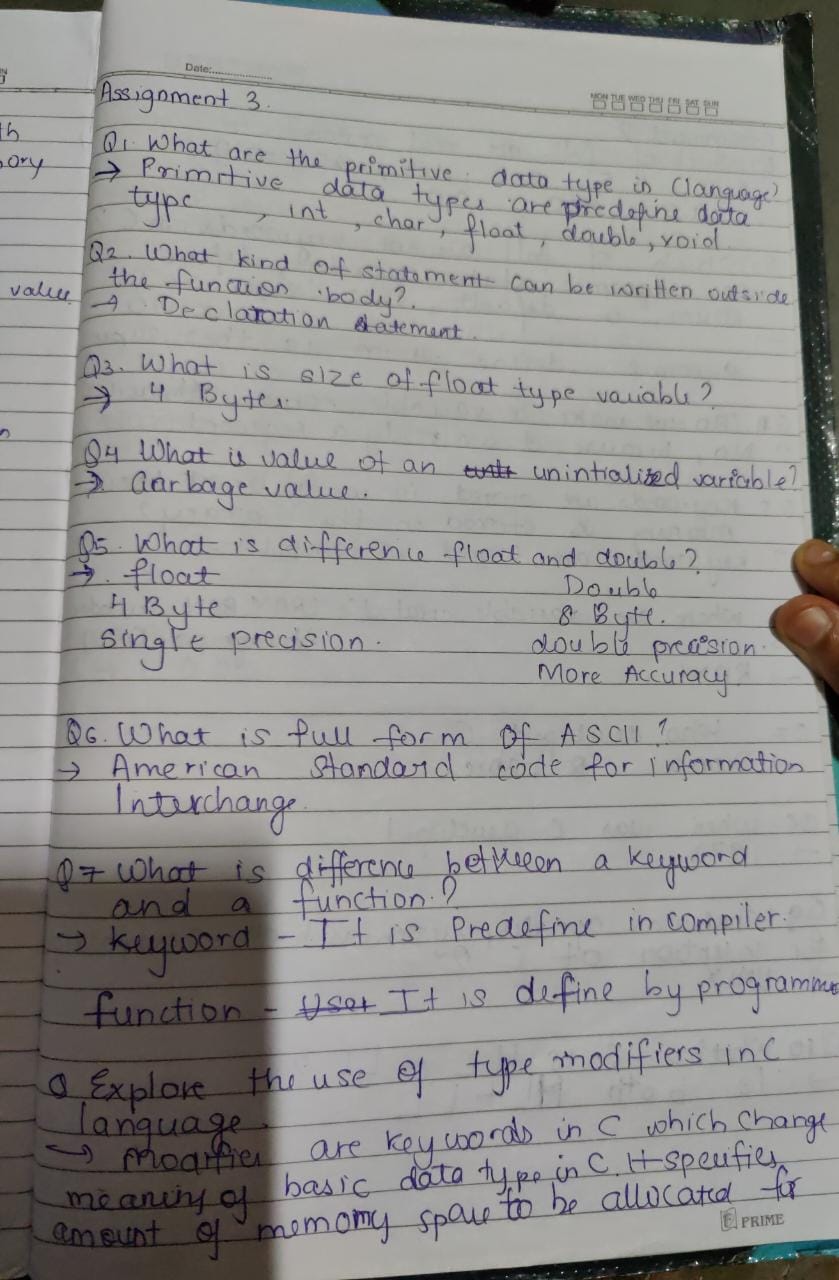 N
th
ory
value
n
Date:
MON TUE WED THU FRI SAT SUN
Assignment 3.
Q1. What are the primitive data type in Clanguage?
→ Primitive data types are predefine data
type , int , char, float, double, void
Q2. What kind of statement can be written outside
the function body?
→ Declaration statement.
Q3. What is size of float type variable?
→ 4 Bytes.
Q4 What is value of an unintialized variable?
→ Garbage value.
Q5. What is difference float and double?
→ float Double
4 Byte 8 Byte.
single precision. double precision.
More Accuracy
Q6. What is full form of ASCII?
→ American Standard code for information
Interchange.
Q7 What is difference between a keyword
and a function.?
→ keyword - It is Predefine in compiler.
function - User It is define by programme
Q Explore the use of type modifiers in C
language.
→ modifier are keywords in C which change
meaning of basic data type in C. It specifies
amount of memomy space to be allocated for
PRIME